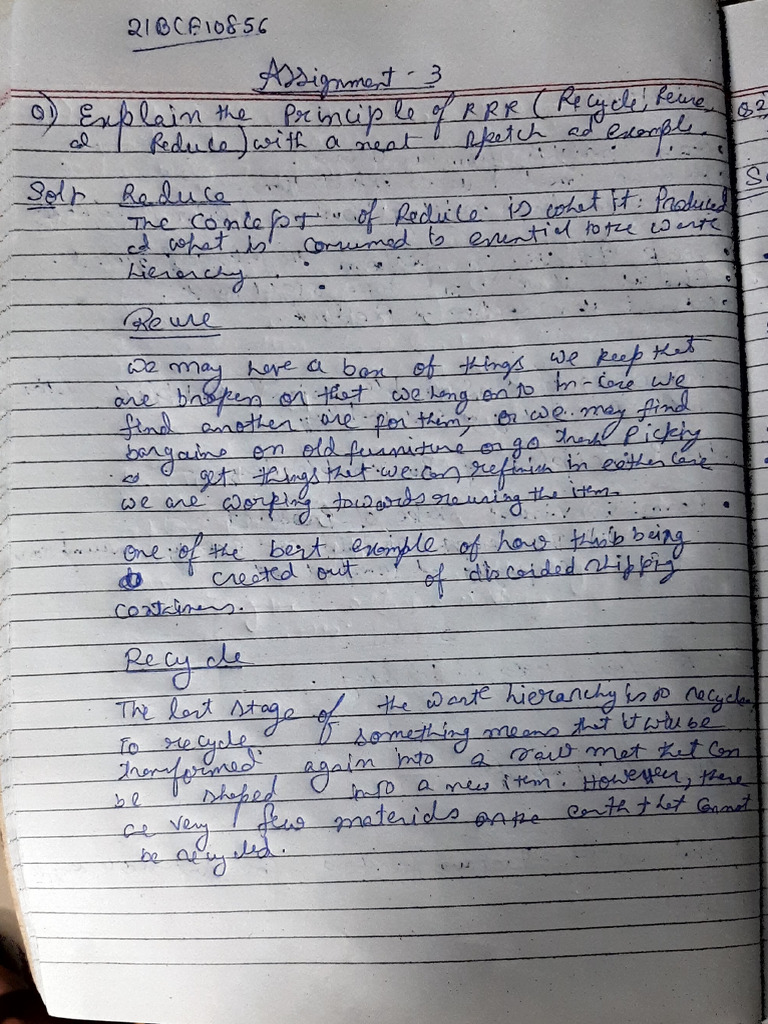 21BCF10856
Assignment - 3
Q1) Explain the Principle of RRR (Recycle, Reuse,
Reduce) with a neat sketch ad example.
Soln. Reduce
The Concept of Reduce is what it Produced
ad what is consumed is essential to the waste
hierarchy.
Reuse
We may have a box of things we keep that
are broken or that we hang on to in-case we
find another use for them, or we may find
bargains on old furniture or go trash Picking
get things that we can refinish in either case
we are working towards reusing the item.
one of the best example of how this being
created out of discarded shipping
containers.
Recycle
The last stage of the waste hierarchy is to recycle.
To recycle something means that it will be
transformed again into a raw mat that can
be shaped into a new item. However, there
are very few materials on the earth that cannot
be recycled.
Q2